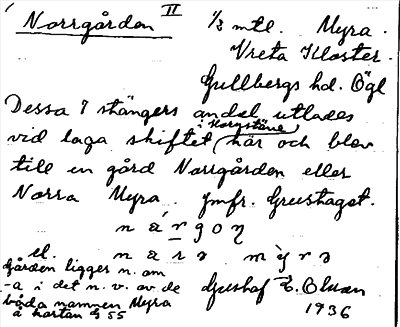 Norrgården II ½ mtl. Myra.
Vreta Kloster.
Gullbergs hd. Ögl
Dessa 7 stängers andel utlades
i Korgstäve
vid laga skiftet här och blev
till en gård Norrgården eller
Norra Myra. Jmfr. Greustaget.
n á r g o ŋ
el. n a r a m ỳ r a
Gården ligger n. om
-a i det n. v. av de
båda namnen Myra
å kartan G 55
Gustaf E. Olsson
1936